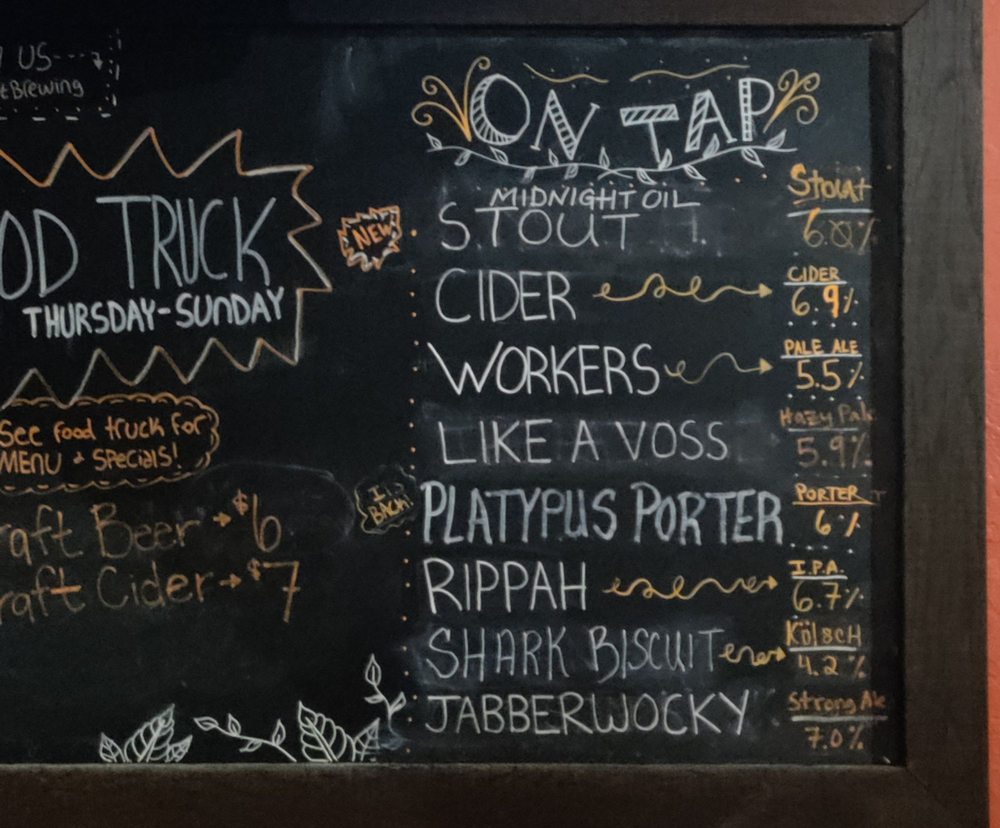 US
tBrewing
OD TRUCK
THURSDAY-SUNDAY
See food truck for
MENU & SPECIALS!
raft Beer → $6
raft Cider → $7
ON TAP
NEW
MIDNIGHT OIL
STOUT
Stout
6.0%
CIDER
CIDER
6.9%
WORKERS
PALE ALE
5.5%
LIKE A VOSS
Hazy Pale
5.9%
I BACK!
PLATYPUS PORTER
PORTER
6%
RIPPAH
I.P.A.
6.7%
SHARK BISCUIT
KÖLSCH
4.2%
JABBERWOCKY
Strong Ale
7.0%